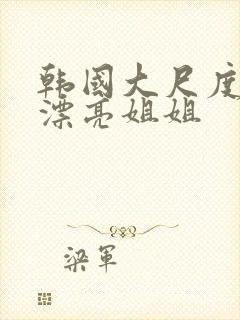 韩國大尺度
漂亮姐姐
梁軍